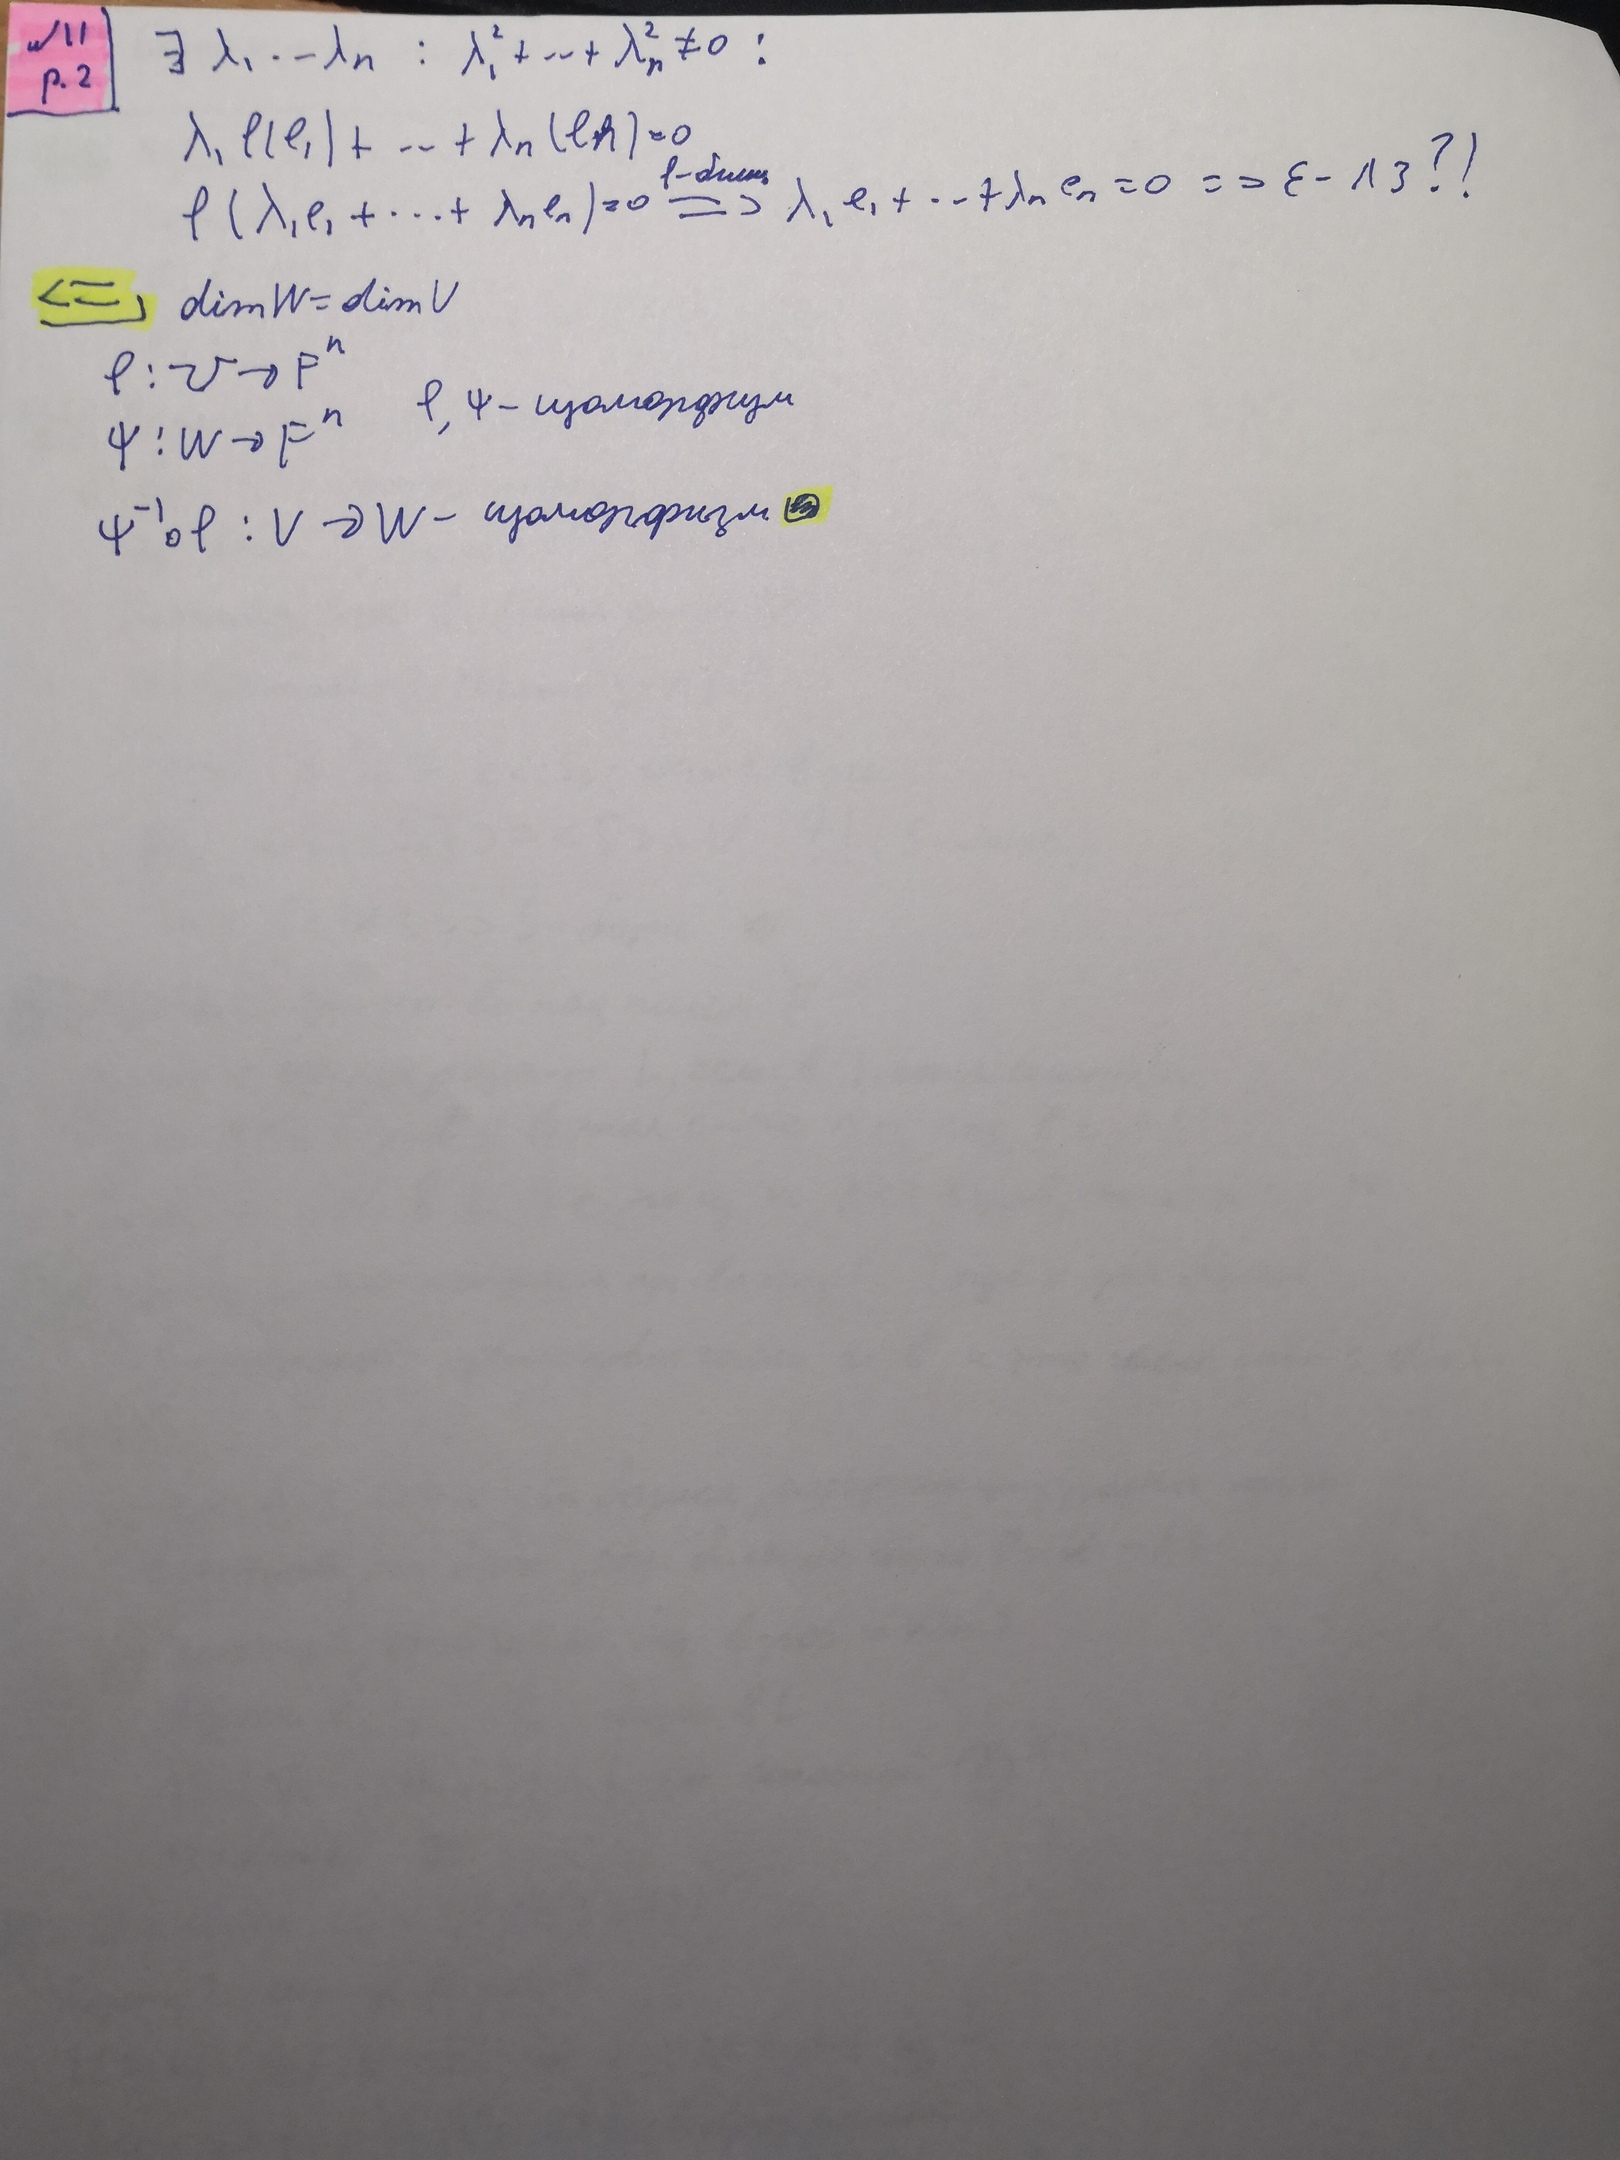 w11
p.2
∃ λ₁ ... λₙ : λ₁² + ... + λₙ² ≠ 0 :
λ₁ φ(e₁) + ... + λₙ (en) = 0
φ(λ₁e₁ + ... + λₙeₙ) = 0 =φ-биекц=> λ₁e₁ + ... + λₙeₙ = 0 => ε - ЛЗ?!
<=, dim W = dim V
φ : V → Fⁿ
φ, ψ - изоморфизм
ψ : W → Fⁿ
ψ⁻¹∘φ : V → W - изоморфизм